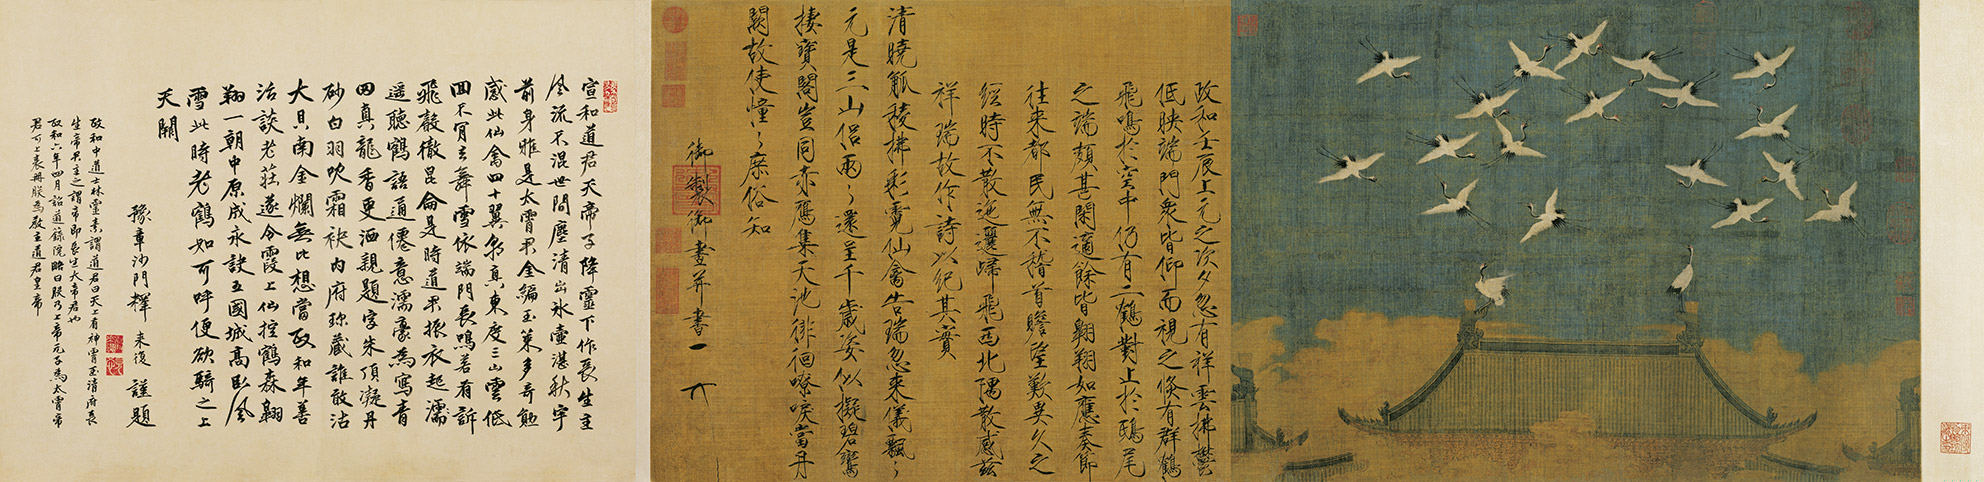 政和壬辰上元之次夕忽有祥雲拂鬱
低映端門眾皆仰而視之倏有群鶴
飛鳴於空中仍有二鶴對止於鴟尾
之端頗甚閑適餘皆翱翔如應奏節
往來都民無不稽首瞻望歎異久之
經時不散迤邐歸飛西北隅散感茲
祥瑞故作詩以紀其實
清曉觚稜拂彩霓仙禽告瑞忽來儀飄〻
元是三山侶兩〻還呈千歲姿似擬碧鸞
棲寶閣豈同赤鴈集天池徘徊嘹唳當丹
闕故使憧〻庶俗知
御製御書并書
宣和道君天帝子降靈下作長生主
風流不混世間塵清出冰壺湛秋宇
前身雅是太霄君金編玉策多奇勛
感此仙禽四十翼朝真東度三山雲低
回不肯去舞雪依端門長鳴若有訴
飛聲徹昆侖是時道君振衣起濡
遥聽鶴語通僊意濡豪為寫青
田真龍香更洒親題字朱頂凝丹
砂白羽吹霜袂內府珍藏誰敢沽
大貝南金爛無比想當政和年善
治談老莊遂令霞上仙控鶴森翱
翔一朝中原成永訣五國城高臥風
雪此時老鶴如可呼便欲騎之上
天關
豫章沙門釋 來復 謹題
政和中道士林靈素謂道君曰天上有神霄玉清府長
生帝君主之謂帝即長生大帝君也
政和六年四月詔道籙院略曰朕乃上帝元子為太霄帝
君可上表冊朕為教主道君皇帝